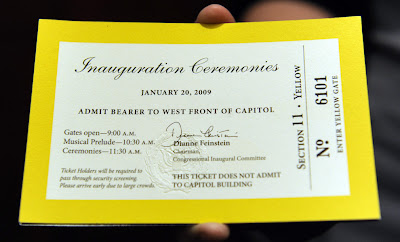 Inauguration Ceremonies
JANUARY 20, 2009
ADMIT BEARER TO WEST FRONT OF CAPITOL
Gates open—9:00 A.M.
Musical Prelude—10:30 A.M.
Ceremonies—11:30 A.M.
Dianne Feinstein
Chairman,
Congressional Inaugural Committee
Ticket Holders will be required to
pass through security screening.
Please arrive early due to large crowds.
THIS TICKET DOES NOT ADMIT
TO CAPITOL BUILDING
SECTION 11 · YELLOW
Nº 6101
ENTER YELLOW GATE